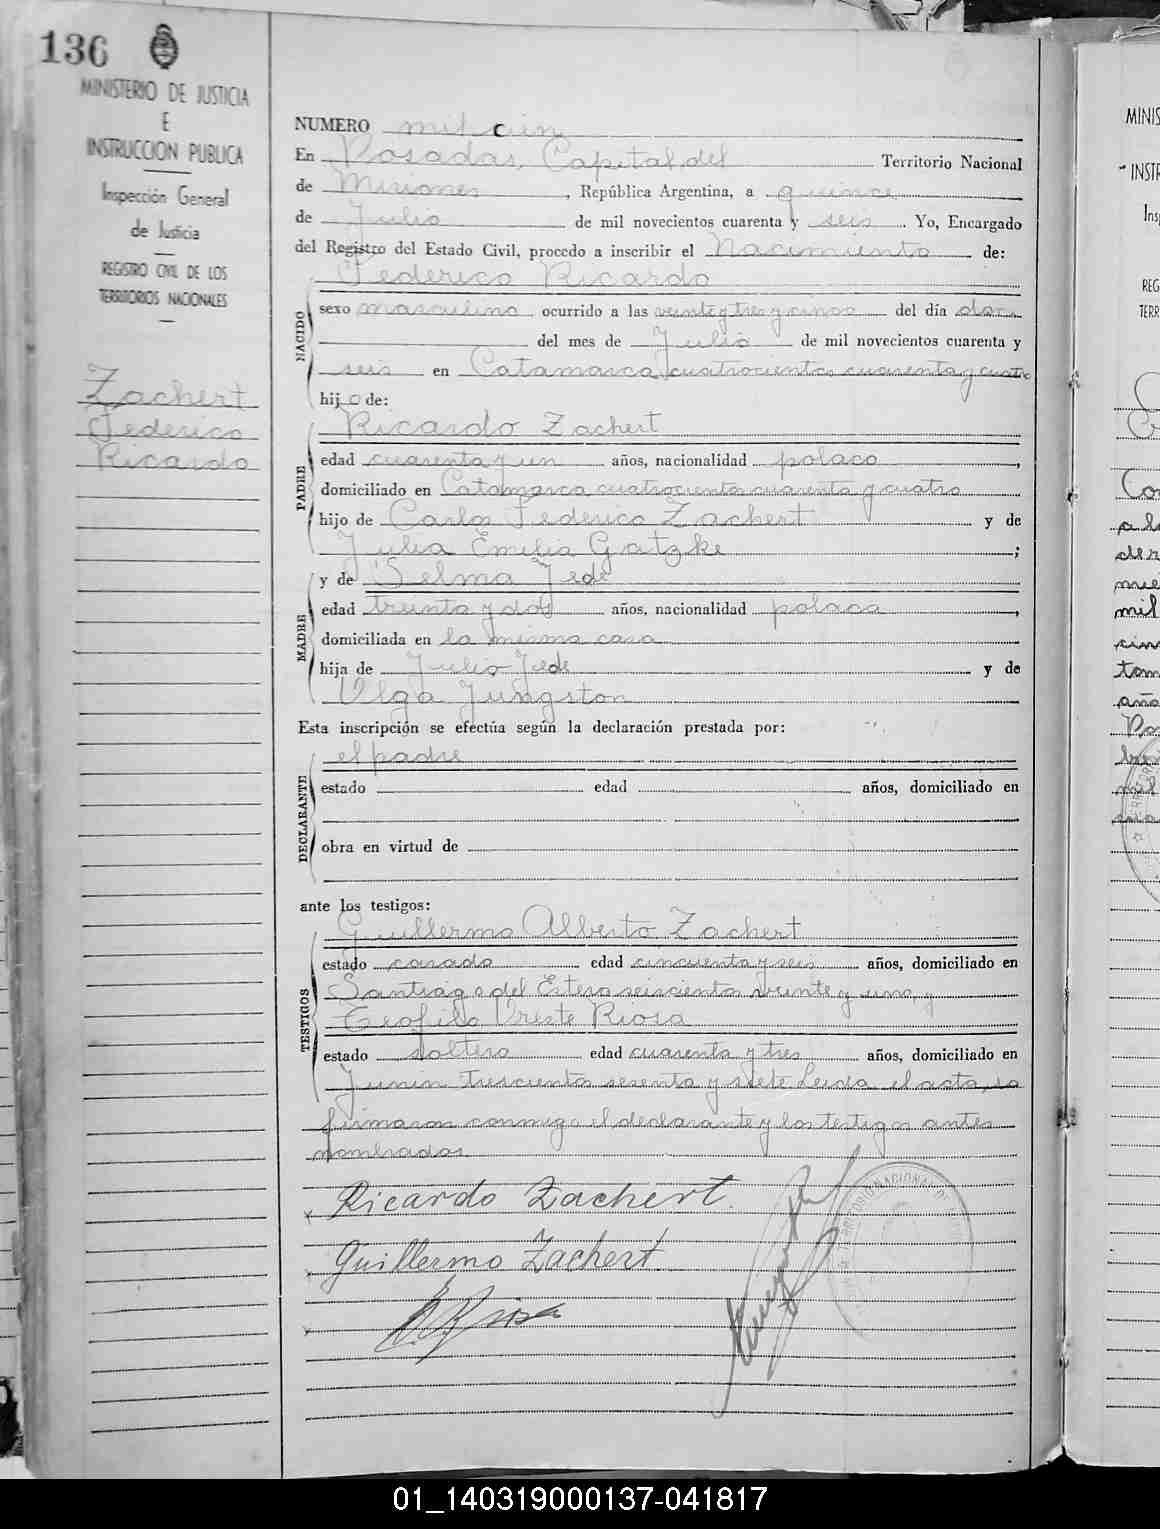 136
MINISTERIO DE JUSTICIA
E
INSTRUCCION PUBLICA
Inspección General
de Justicia
REGISTRO CIVIL DE LOS
TERRITORIOS NACIONALES
Zachert
Federico
Ricardo
NUMERO mil cien
En Posadas, Capital del Territorio Nacional
de Misiones, República Argentina, a quince
de Julio de mil novecientos cuarenta y seis. Yo, Encargado
del Registro del Estado Civil, procedo a inscribir el Nacimiento de:
Federico Ricardo
NACIDO
sexo masculino ocurrido a las veinte y tres y cinco del día dos
del mes de Julio de mil novecientos cuarenta y
seis en Catamarca cuatrocientos cuarenta y cuatro
hijo de:
Ricardo Zachert
PADRE
edad cuarenta y un años, nacionalidad polaco,
domiciliado en Catamarca cuatrocientos cuarenta y cuatro
hijo de Carlos Federico Zachert y de
Julia Emilia Gatzke;
MADRE
y de Selma Jede
edad treinta y dos años, nacionalidad polaca,
domiciliada en la misma casa
hija de Julio Jede y de
Olga Jungston
Esta inscripción se efectúa según la declaración prestada por:
el padre
DECLARANTE
estado edad años, domiciliado en
obra en virtud de
ante los testigos:
Guillermo Alberto Zachert
TESTIGOS
estado casado edad cincuenta y seis años, domiciliado en
Santiago del Estero seiscientos veinte y uno, y
Teofilo Oreste Riosa
estado soltero edad cuarenta y tres años, domiciliado en
Junin trescientos sesenta y siete Leida el acta, la
firmaron conmigo el declarante y los testigos antes
nombrados.
Ricardo Zachert.
Guillermo Zachert
Riosa
TERRITORIO NACIONAL DE
MINIS
INSTR
Ins
REG
TERR
Co
a la
der
mue
mil
cin
tom
año
Po
mil
01_140319000137-041817